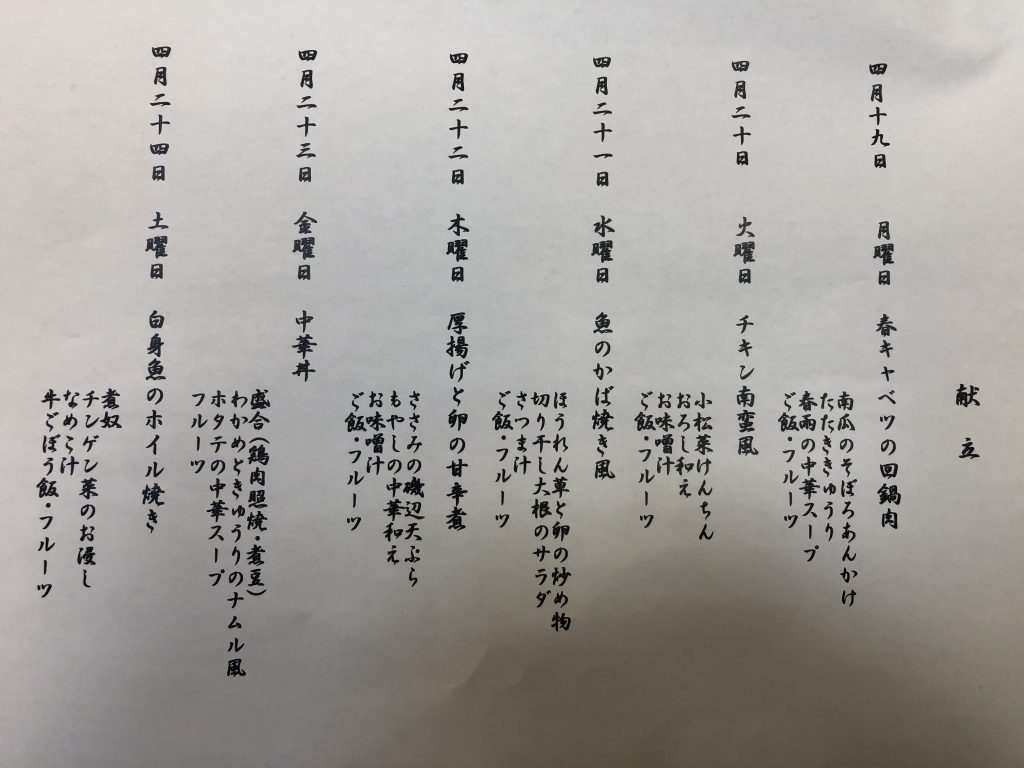 献立
四月十九日 月曜日 春キャベツの回鍋肉
南瓜のそぼろあんかけ
たたききゅうり
春雨の中華スープ
ご飯・フルーツ
四月二十日 火曜日 チキン南蛮風
小松菜けんちん
おろし和え
お味噌汁
ご飯・フルーツ
四月二十一日 水曜日 魚のかば焼き風
ほうれん草と卵の炒め物
切り干し大根のサラダ
さつま汁
ご飯・フルーツ
四月二十二日 木曜日 厚揚げと卵の甘辛煮
ささみの磯辺天ぷら
もやしの中華和え
お味噌汁
ご飯・フルーツ
四月二十三日 金曜日 中華丼
盛合(鶏肉照焼・煮豆)
わかめときゅうりのナムル風
ホタテの中華スープ
フルーツ
四月二十四日 土曜日 白身魚のホイル焼き
煮奴
チンゲン菜のお浸し
なめこ汁
牛ごぼう飯・フルーツ